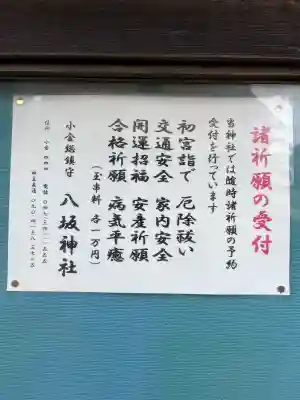 諸祈願の受付
当神社では随時諸祈願の予約
受付を行っています
初宮詣で 厄除祓い
交通安全 家内安全
開運招福 安産祈願
合格祈願 病気平癒
(玉串料 各一万円)
小金総鎮守 八坂神社